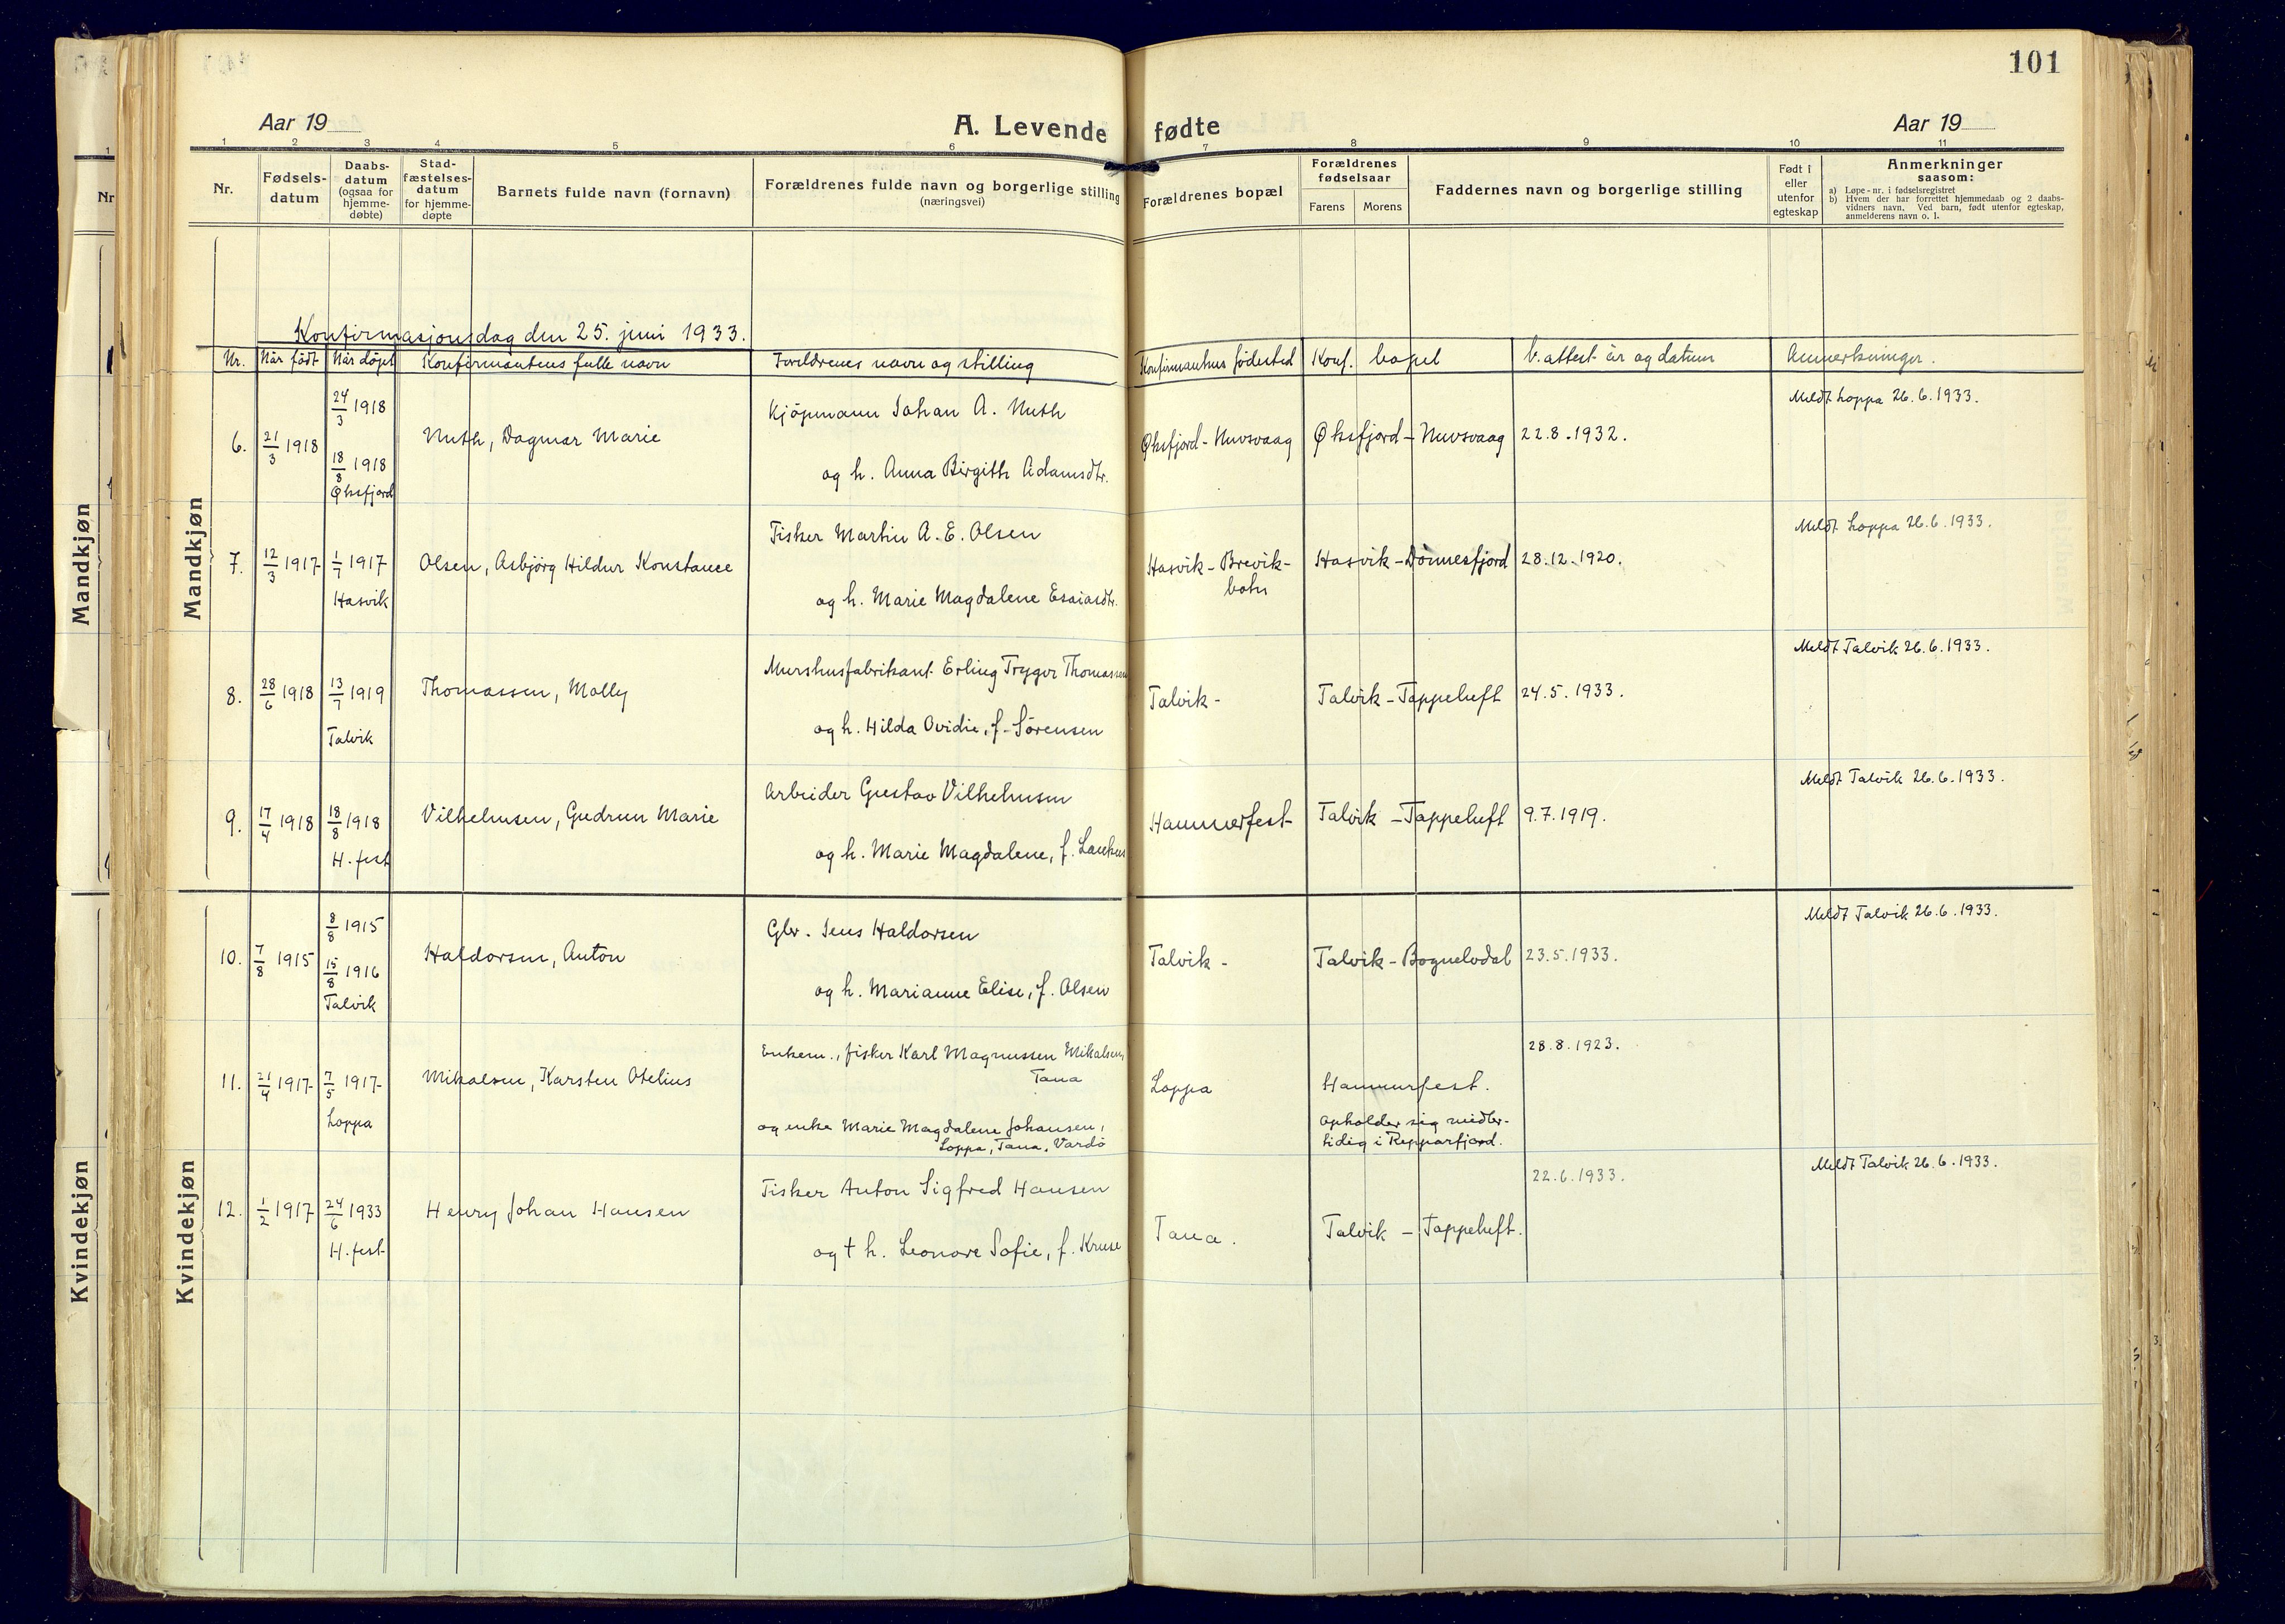 101
Aar 19
A. Levende fødte
Aar 19
1 2 3 4 5 6 7 8 9 10 11
Nr.
Fødsels-
datum
Daabs-
datum
(ogsaa for
hjemme-
døbte)
Stad-
fæstelses-
datum
for hjemme-
døpte
Barnets fulde navn (fornavn)
Forældrenes fulde navn og borgerlige stilling
(næringsvei)
Forældrenes bopæl
Forældrenes
fødselsaar
Farens
Morens
Faddernes navn og borgerlige stilling
Født i
eller
utenfor
egteskap
Anmerkninger
saasom:
a) Løpe-nr. i fødselsregistret
b) Hvem der har forrettet hjemmedaab og 2 daabs-
vidners navn. Ved barn, født utenfor egteskap,
anmelderens navn o. l.
Nr
Mandkjøn
Kvindekjøn
Mandkjøn
Kvindekjøn
Konfirmasjonsdag den 25. juni 1933.
Nr. Når født Når døpt Konfirmantens fulle navn Foreldrenes navn og stilling Konfirmantens fødested Konf. bopel V. attest år og datum Anmerkninger.
6. 21/3 1918
24/3 1918
18/8 1918
Øksfjord
Nuth, Dagmar Marie
Kjöpmann Johan A. Nuth
og h. Anna Birgith Adamsdtr.
Øksfjord - Nuvsvaag
Øksfjord - Nuvsvaag
22.8.1932.
Meldt Loppa 26.6.1933.
7. 12/3 1917
1/7 1917
Hasvik
Olsen, Asbjörg Hildur Konstance
Fisker Martin A. E. Olsen
og h. Marie Magdalene Esaiasdtr.
Hasvik - Brevik-
botn
Hasvik - Dönnesfjord
28.12.1920.
Meldt Loppa 26.6.1933.
8. 28/6 1918
13/7 1919
Talvik
Thomassen, Molly
Murshusfabrikant Erling Trygve Thomassen
og h. Hilda Ovidie, f. Sörensen
Talvik -
Talvik - Tappeluft
24.5.1933.
Meldt Talvik 26.6.1933.
9. 17/4 1918
18/8 1918
H.fest
Vilhelmsen, Gudrun Marie
Arbeider Gustav Vilhelmsen
og h. Marie Magdalene, f.
Hammerfest
Talvik - Tappeluft
9.7.1919.
Meldt Talvik 26.6.1933.
10. 7/8 1915
8/8 1915
15/8 1916
Talvik
Haldorsen, Anton
Gbr. Jens Haldorsen
og h. Marianne Elise, f. Olsen
Talvik -
Talvik - Bognelvdal
23.5.1933.
Meldt Talvik 26.6.1933.
11. 21/4 1917
7/5 1917
Loppa
Mikalsen, Karsten Otelius
Enkem., fisker Karl Magnussen Mikalsen,
Tana
og enke Marie Magdalene Johansen,
Loppa, Tana, Vardö
Loppa
Hammerfest.
Opholder sig midler-
tidig i Repparfjord.
28.8.1923.
12. 1/2 1917
24/6 1933
H.fest
Henry Johan Hansen
Fisker Anton Sigfred Hansen
og † h. Leonore Sofie, f. Kruse
Tana.
Talvik - Tappeluft.
22.6.1933.
Meldt Talvik 26.6.1933.